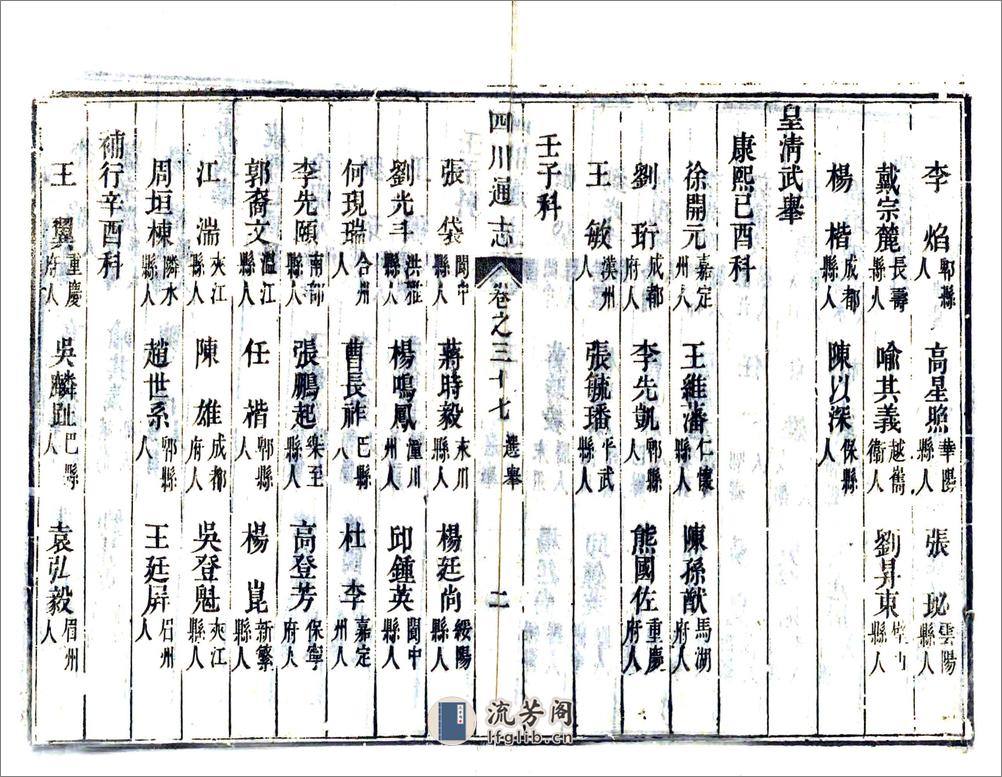 李焰郫縣人 高星照華陽縣人 張珌雲陽縣人
戴宗麓長壽縣人 喻其義越嶲衛人 劉昇東壁山縣人
楊楷成都縣人 陳以深保縣人
皇清武舉
康熙己酉科
徐開元嘉定州人 王維藩仁懷縣人 陳孫猷馬湖府人
劉珩成都府人 李先凱郫縣人 熊國佐重慶府人
王敏漢州人 張毓璠平武縣人
壬子科
四川通志 卷之三十七 選舉 二
張袋閬中縣人 蔣時毅永川縣人 楊廷尚綏陽縣人
劉光斗洪雅縣人 楊鳴鳳潼川州人 邱鍾英閬中縣人
何現瑞合州人 曹長祚巴縣人 杜李嘉定州人
李先頤南部縣人 張鵬起樂至縣人 高登芳保寧府人
郭裔文溫江縣人 任楷郫縣人 楊崑新繁縣人
江湍夾江縣人 陳雄成都府人 吳登魁夾江縣人
周垣棟隣水縣人 趙世系郫縣人 王廷屏合州人
補行辛酉科
王翼重慶府人 吳麟趾巴縣人 袁弘毅眉州人
流芳阁
lfglib.cn